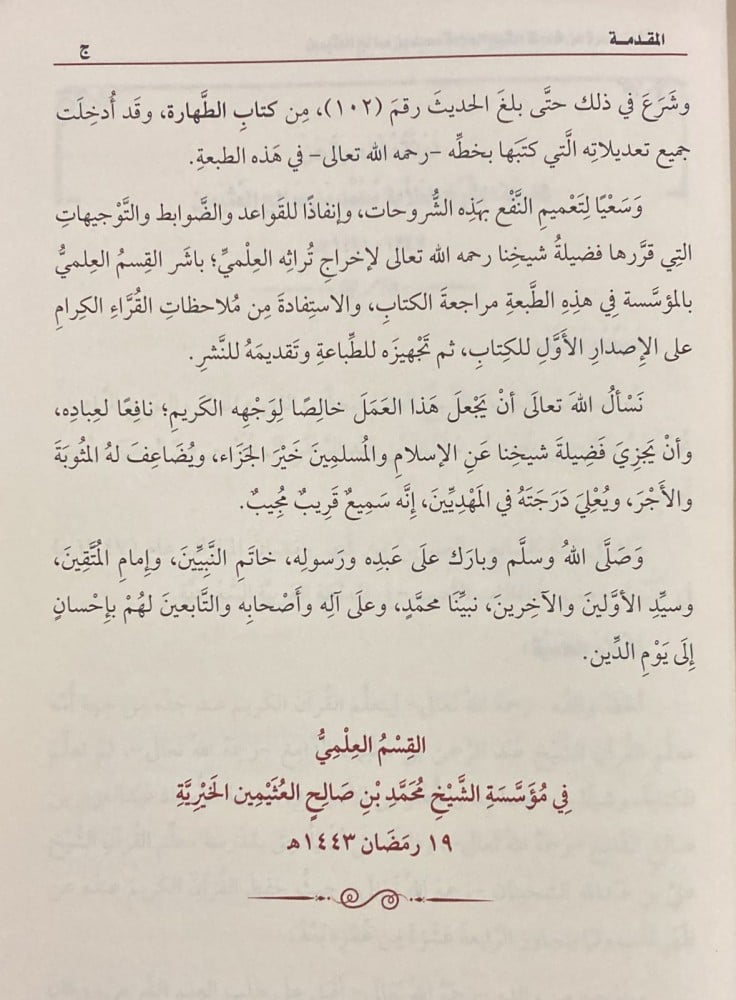 المقدمة ج
وشَرَعَ في ذلك حتَّى بلغَ الحديثَ رقمَ (١٠٢)، مِن كتابِ الطَّهارة، وقَد أُدخِلَت
جميع تعديلاتِه الَّتي كتَبَها بخطِّه -رحمه الله تعالى- في هَذه الطبعةِ.
وَسَعْيًا لِتَعْميمِ النَّفْع بهَذِه الشُّروحات، وإنفاذًا للقَواعد والضَّوابط والتَّوْجيهاتِ
التِي قرَّرها فضيلةُ شيخِنا رحمه الله تعالى لإخراجِ تُراثِه العِلْميِّ؛ باشَر القِسمُ العِلميُّ
بالمؤسَّسة فِي هذِهِ الطَّبعةِ مراجعةَ الكتابِ، والاستِفادةَ مِن مُلاحظاتِ القُرَّاءِ الكِرامِ
على الإصدارِ الأَوَّلِ للكِتابِ، ثم تَجْهيزَه للطِّباعةِ وتَقديمَهُ للنَّشرِ.
نَسْألُ اللهَ تعالَى أنْ يَجْعلَ هَذا العَمَلَ خالِصًا لِوَجْهِه الكَريمِ؛ نافِعًا لعِبادِه،
وأنْ يَجزِيَ فَضِيلةَ شيخِنا عَنِ الإسلامِ والمُسلمِينَ خَيْرَ الجَزَاء، ويُضَاعِفَ لهُ المثُوبَةَ
والأَجْرَ، ويُعْلِيَ دَرَجَتَهُ في المَهْدِيِّينَ، إنَّه سَمِيعٌ قَرِيبٌ مُجِيبٌ.
وَصَلَّى اللهُ وسلَّم وبارَك علَى عَبدِه ورَسولِه، خاتَمِ النَّبيِّينَ، وإمامِ المُتَّقِينَ،
وسيِّدِ الأوَّلينَ والآخِرينَ، نبيِّنَا محمَّدٍ، وعلَى آلِه وأَصْحابِه والتَّابعينَ لهُمْ بإِحْسانٍ
إلَى يَوْمِ الدِّين.
القِسْمُ العِلْمِيُّ
فِي مُؤَسَّسَةِ الشَّيْخِ مُحَمَّدِ بْنِ صَالِحٍ العُثَيْمِين الخَيْرِيَّةِ
١٩ رمَضَان ١٤٤٣هـ